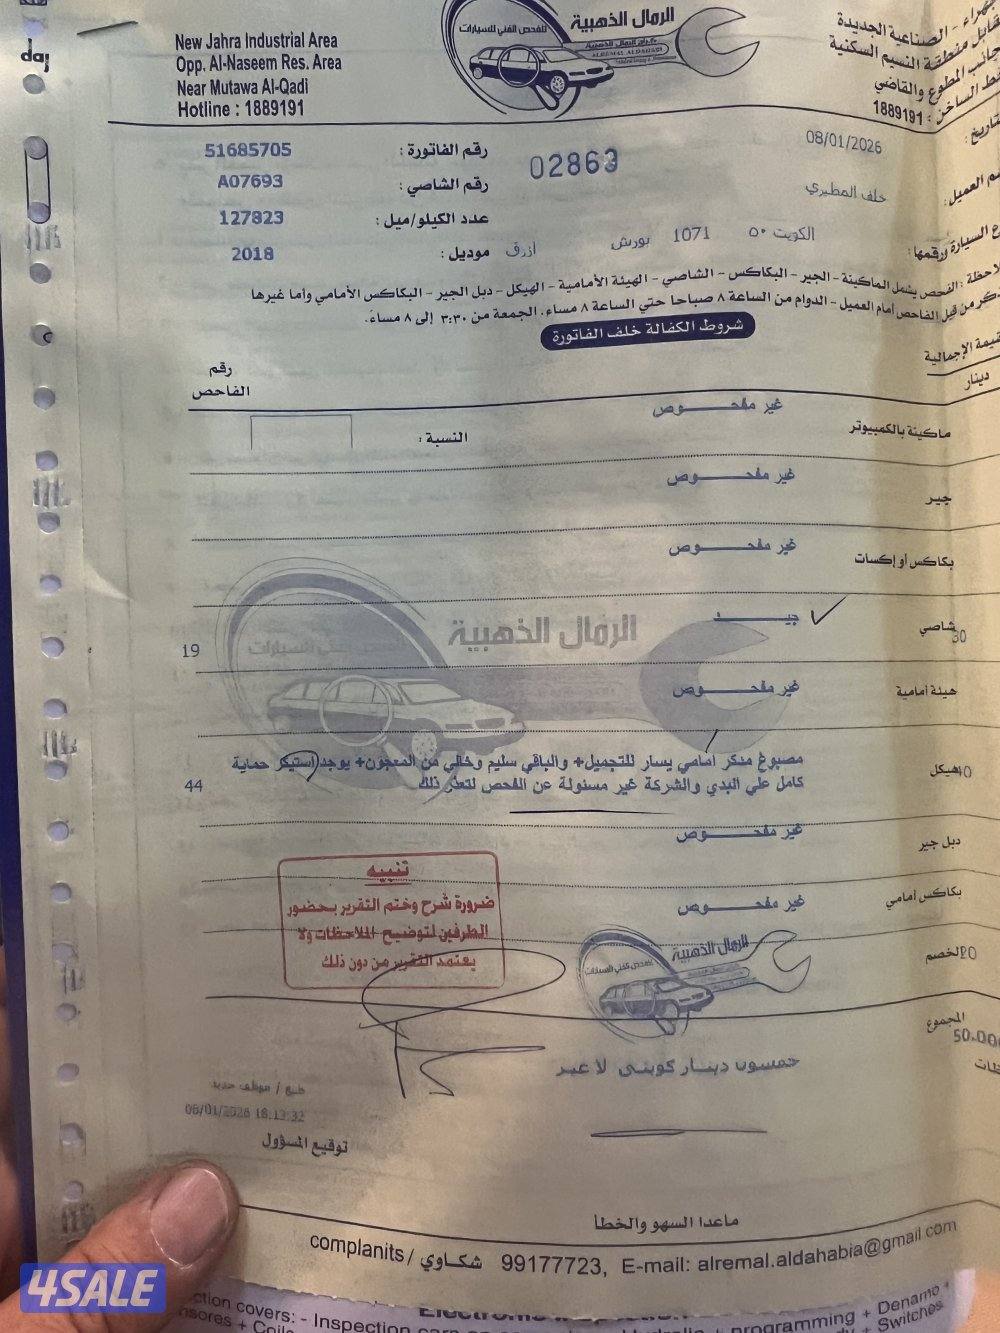 day
New Jahra Industrial Area
Opp. Al-Naseem Res. Area
Near Mutawa Al-Qadi
Hotline : 1889191
الرمال الذهبية
للفحص الفني للسيارات
ALREMAL ALDAHABI
الجهراء - الصناعية الجديدة
مقابل منطقة النسيم السكنية
بجانب المطوع والقاضي
الخط الساخن : 1889191
رقم الفاتورة : 51685705
02863
التاريخ : 08/01/2026
رقم الشاصي : A07693
خلف المطيري
عدد الكيلو/ميل : 127823
السيارة ورقمها : الكويت ٥٠ 1071 بورش أزرق
موديل : 2018
الفحص يشمل الماكينة - الجير - البكاكس - الشاصي - الهيئة الأمامية - الهيكل - دبل الجير - البكاكس الأمامي وأما غيرها
من قبل الفاحص أمام العميل - الدوام من الساعة ٨ صباحا حتي الساعة ٨ مساء. الجمعة من ٣:٣٠ إلى ٨ مساءً.
شروط الكفالة خلف الفاتورة
القيمة الإجمالية
دينار
رقم
الفاحص
ماكينة بالكمبيوتر غير مفحـــــوص
النسبة :
جير غير مفحـــــوص
بكاكس أو إكسات غير مفحـــــوص
30 شاصي جيـــــد 19
هيئة أمامية غير مفحـــــوص
هيكل مصبوغ مدكر أمامي يسار للتجميل+ والباقي سليم وخالي من المعجون+ يوجد استيكر حماية
كامل علي البدي والشركة غير مسئولة عن الفحص لتعذر ذلك 44
دبل جير غير مفحـــــوص
بكاكس أمامي غير مفحـــــوص
تنبيه
ضرورة شرح وختم التقرير بحضور
الطرفين لتوضيح الملاحظات ولا
يعتمد التقرير من دون ذلك
الرمال الذهبية
الخصم
المجموع
خمسون دينار كويتي لا غير
08/01/2026 18:13:32
توقيع المسؤول
ماعدا السهو والخطأ
complanits / شكاوي 99177723, E-mail: alremal.aldahabia@gmail com
4SALE
ction covers: - Inspection
programming + Denamo
+ Switches